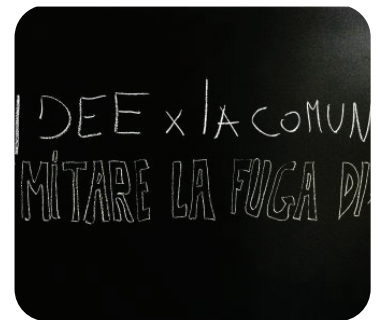 IDEE x lA COMUN
MÍTARE LA FUGA DI